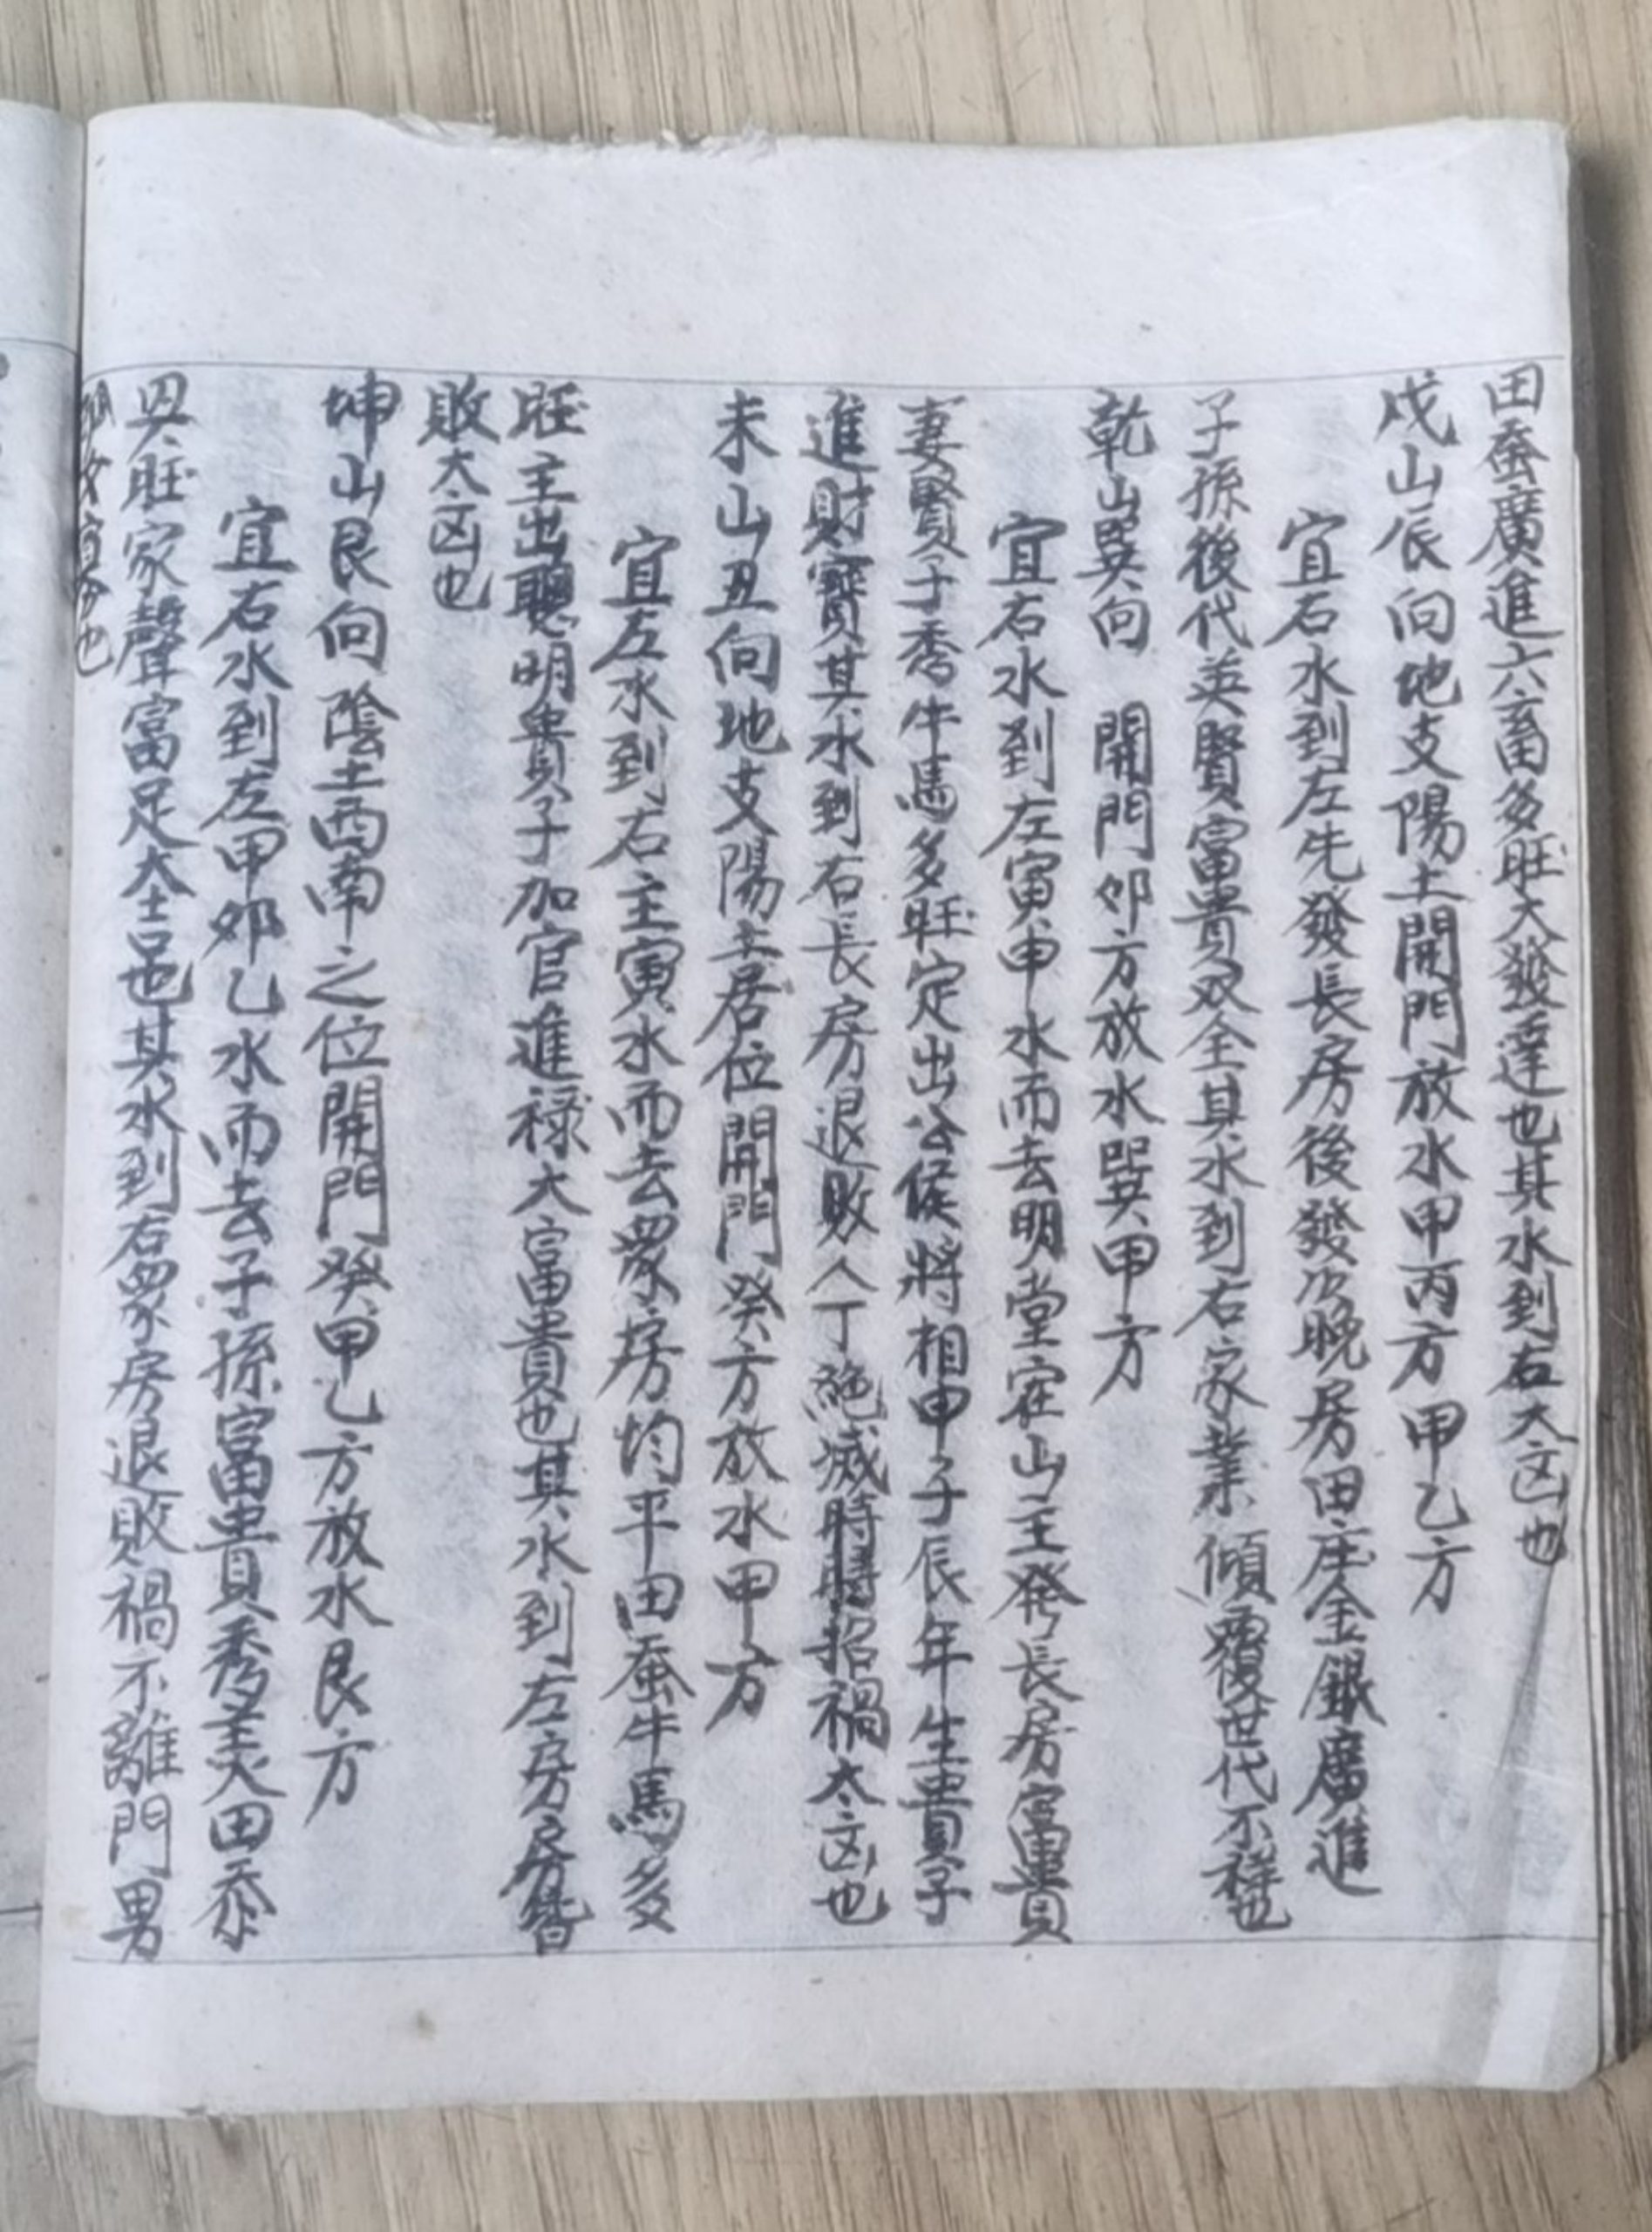 田蚕廣進六畜多旺大發達也其水到右大凶也
戌山辰向地支陽土開門放水甲丙方甲乙方
宜右水到左先發長房後發次晚房田庄金銀廣進
子孫後代英賢富貴双全其水到右家業傾覆世代不祥也
乾山巽向 開門卯方放水巽甲方
宜右水到左寅申水而去明堂在山主発長房富貴
妻賢子秀牛馬多旺定出公侯將相申子辰年生貴子
進財寶其水到右長房退敗人丁絕滅時時招禍大凶也
未山丑向地支陽土居位開門癸方放水甲方
宜左水到右主寅水而去眾房均平田蚕牛馬多
旺主出聰明貴子加官進禄大富貴也其水到左房房皆
敗大凶也
坤山艮向陰土西南之位開門癸甲乙方放水艮方
宜右水到左甲卯乙水而去子孫富貴秀美田蚕
興旺家聲富足大吉也其水到右眾房退敗禍不離門男